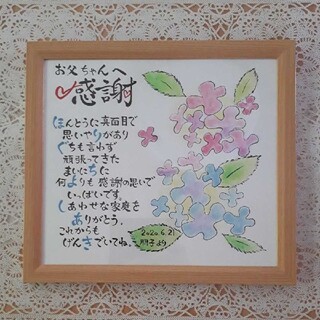 お父ちゃんへ
感謝
ほんとうに真面目で
思いやりがあり
ぐちも言わず
頑張ってきた
まいにちに
何よりも感謝の思いで
いっぱいです。
しあわせな家庭を
ありがとう。
これからも
げんきでいてね。
2020.6.21
朋子より